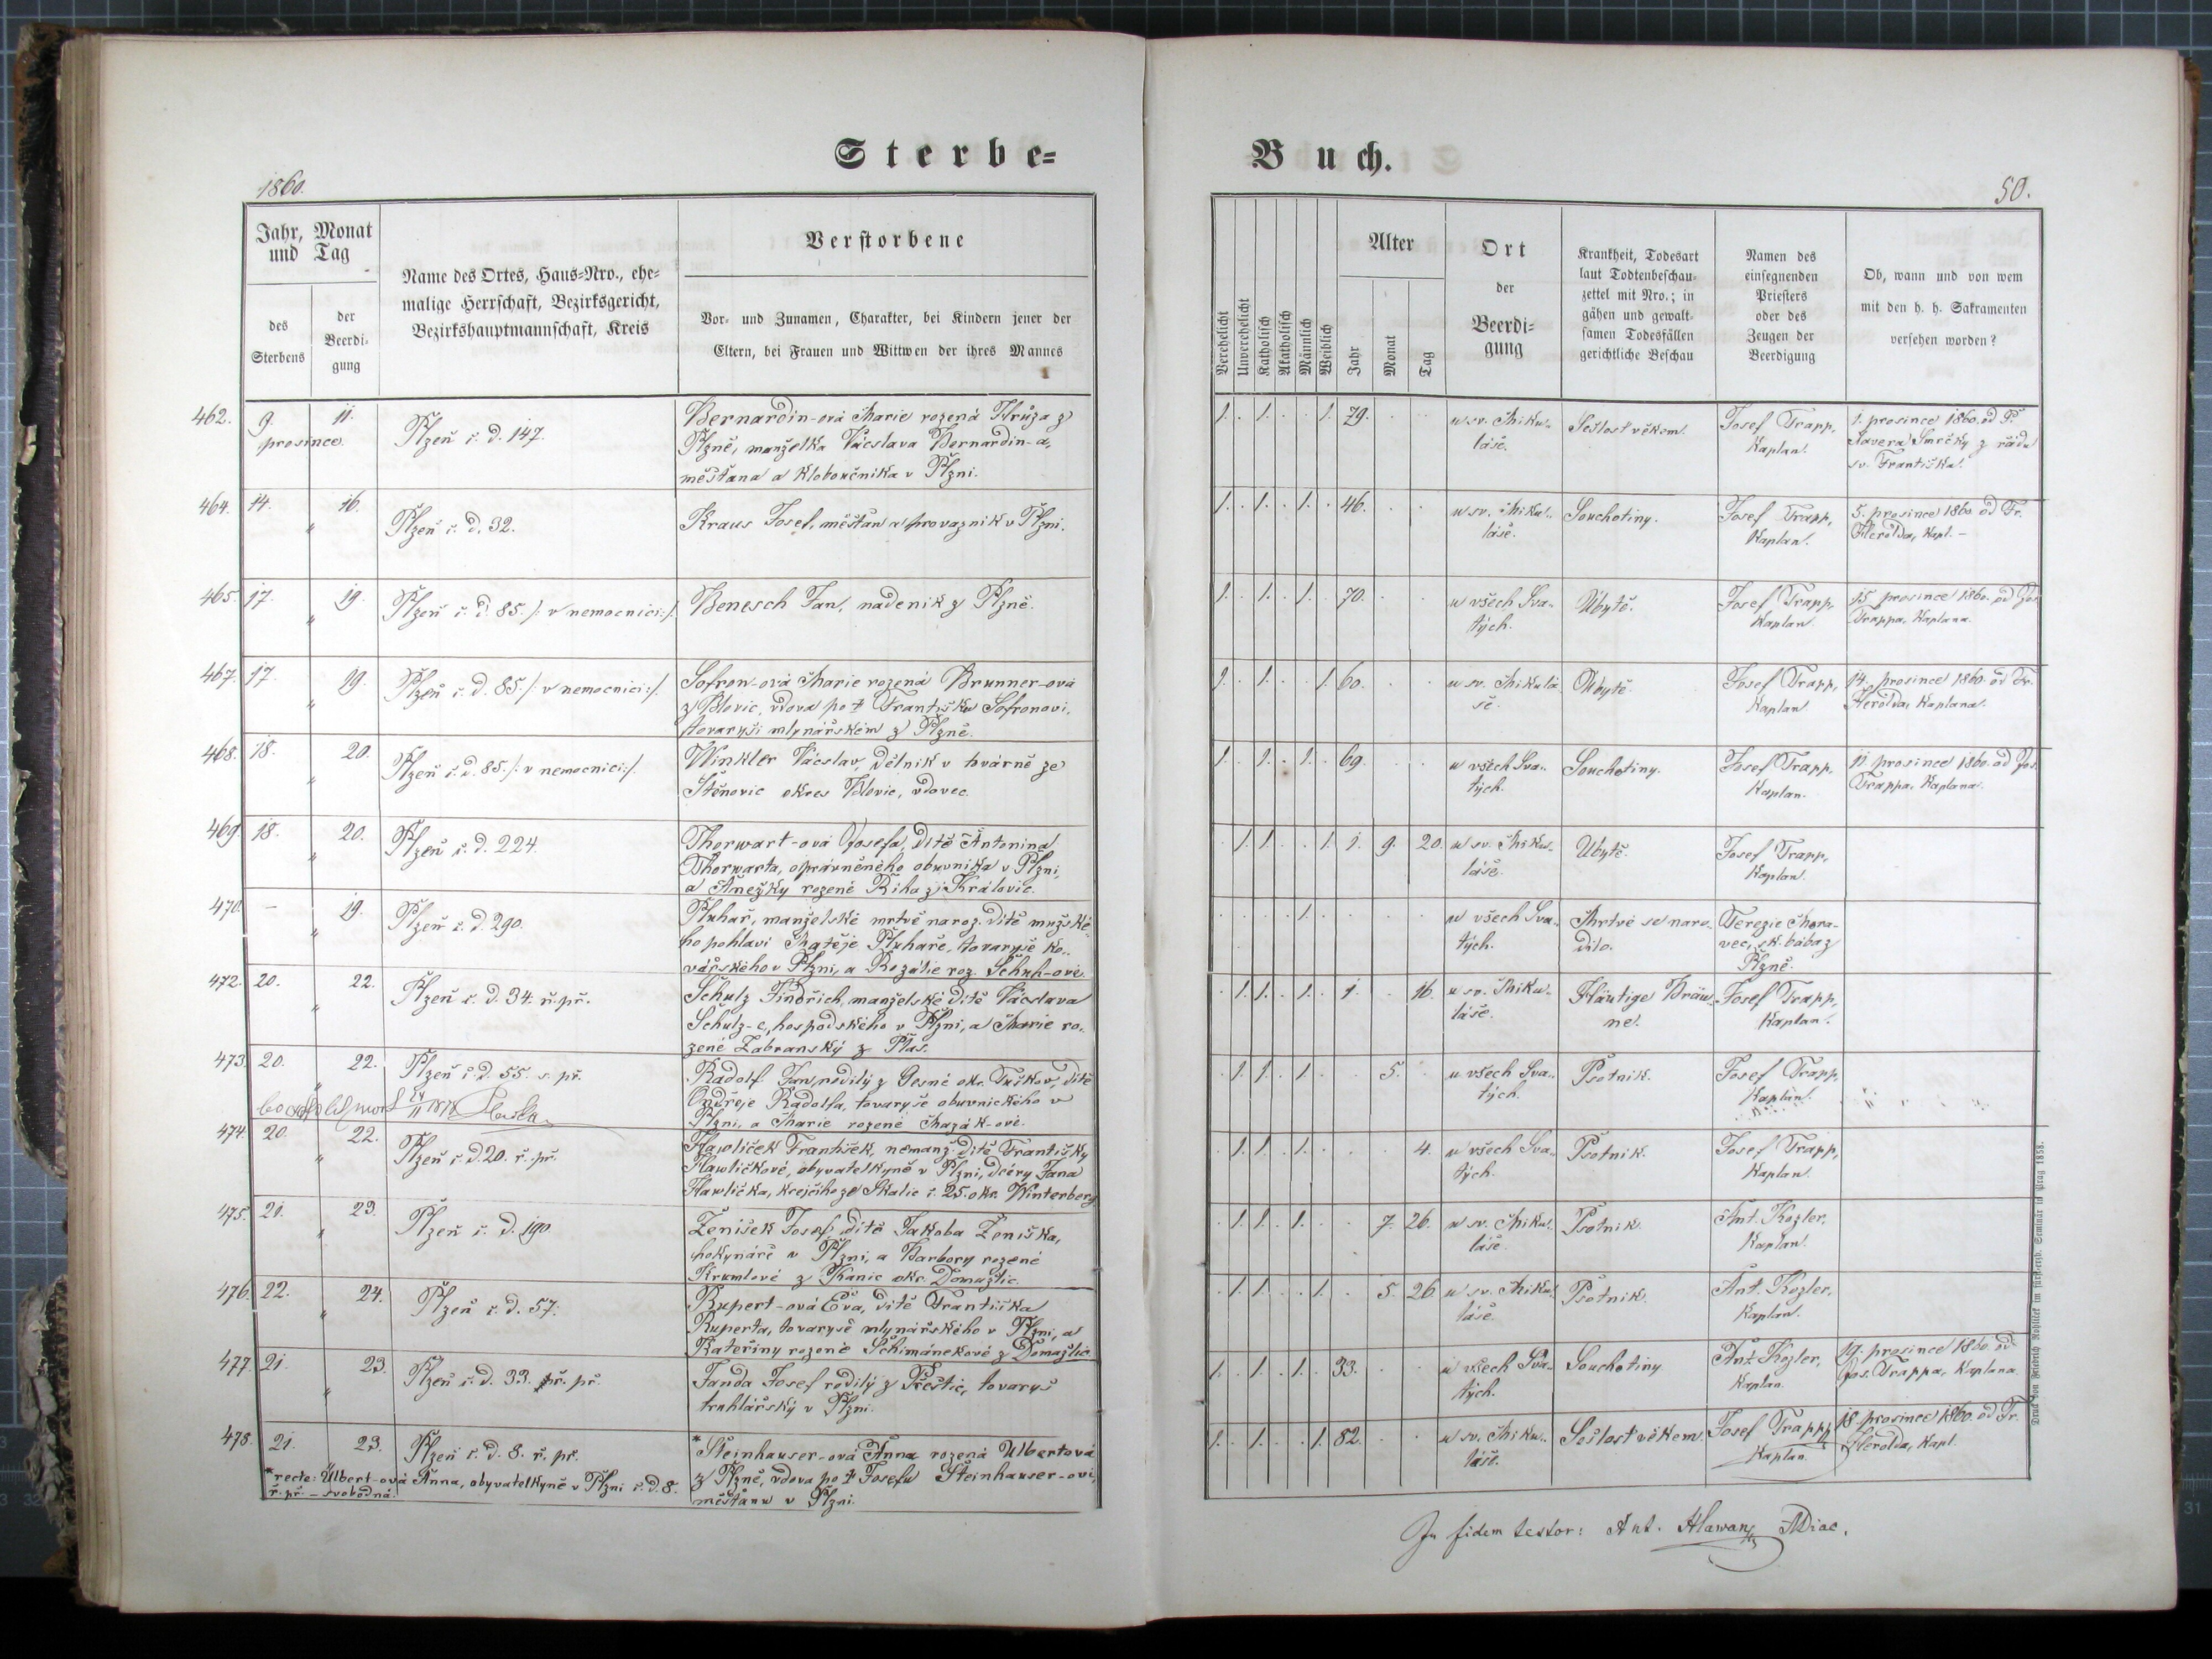 Sterbe=
Buch.
1860.
50.
Jahr, Monat
und Tag
des
Sterbens
der
Beerdi-
gung
Name des Ortes, Haus=Nro., ehe=
malige Herrschaft, Bezirksgericht,
Bezirkshauptmannschaft, Kreis
Verstorbene
Vor- und Zunamen, Charakter, bei Kindern jener der
Eltern, bei Frauen und Wittwen der ihres Mannes
Verehelicht
Unverehelicht
Katholisch
Akatholisch
Männlich
Weiblich
Alter
Jahr
Monat
Tag
Ort
der
Beerdi=
gung
Krankheit, Todesart
laut Todtenbeschau-
zettel mit Nro.; in
gähen und gewalt-
samen Todesfällen
gerichtliche Beschau
Namen des
einsegnenden
Priesters
oder des
Zeugen der
Beerdigung
Ob, wann und von wem
mit den h. h. Sakramenten
versehen worden?
462. 9. 11.
prosince.
Plzeň č. d. 147.
Bernardin-ová Marie rozená Hrůza z
Plzně, manželka Vácslava Bernardin-a,
měšťana a kloboučníka v Plzni.
1. 1. 1. 79.
u sv. Miku-
láše.
Sešlost věkem.
Josef Trapp,
Kaplan.
1. prosince 1860. od P.
Xavera Smrčky z řádu
sv. Františka.
464. 14. 16.
"
Plzeň č. d. 32.
Kraus Josef, měšťan a provazník v Plzni.
1. 1. 1. 46.
u sv. Miku-
láše.
Souchotiny.
Josef Trapp,
Kaplan.
5. prosince 1860 od Fr.
Herolda, Kapl. –
465. 17. 19.
"
Plzeň č. d. 85. /: v nemocnici :/.
Benesch Jan, nadeník z Plzně.
1. 1. 1. 70.
u všech Sva-
tých.
Úbytě.
Josef Trapp,
Kaplan.
15. prosince 1860. od Jos.
Trappa, Kaplana.
467. 17. 19.
"
Plzeň č. d. 85. /: v nemocnici :/.
Sofron-ová Marie rozená Brunner-ová
z Blovic, vdova po † Františku Sofronovi,
tovaryši mlynářském z Plzně.
1. 1. 1. 60.
u sv. Mikulá-
še.
Úbytě.
Josef Trapp,
Kaplan.
14. prosince 1860. od Fr.
Herolda, Kaplana.
468. 18. 20.
"
Plzeň č. d. 85. /: v nemocnici :/.
Winkler Vácslav, dělník v tvárně ze
Štěnovic okres Blovic, vdovec.
1. 1. 1. 69.
u všech Sva-
tých.
Souchotiny.
Josef Trapp,
Kaplan.
11. prosince 1860. od Jos.
Trappa, Kaplana.
469. 18. 20.
"
Plzeň č. d. 224.
Thorwart-ová Josefa, dítě Antonina
Thorwarta, oprávněného obuvníka v Plzni,
a Anežky rozené Řiha z Královic.
1. 1. 1. 1. 9. 20.
u sv. Miku-
láše.
Úbytě.
Josef Trapp,
Kaplan.
470. – 19.
"
Plzeň č. d. 290.
Pluhař, manželské mrtvě naroz. dítě mužské-
ho pohlaví Matěje Pluhaře, tovaryše ko-
vářského v Plzni, a Rozálie roz. Schuh-ové.
1.
u všech Sva-
tých.
Mrtvé se naro-
dilo.
Terezie Mora-
vec, zk. bába z
Plzně.
472. 20. 22.
"
Plzeň č. d. 34. ř. př.
Schulz Jindřich, manželské dítě Vácslava
Schulz-e, hospodského v Plzni, a Marie ro-
zené Zabranský z Plas.
1. 1. 1. 1. 16.
u sv. Miku-
láše.
Häutige Bräu-
ne.
Josef Trapp,
Kaplan.
473. 20. 22.
"
Plzeň č. d. 55. s. př.
Radolf Jan, rodilý z Gesné okr. Tuškov, dítě
Ondřeje Radolfa, tovaryše obuvnického v
Plzni, a Marie rozené Mazák-ové.
1. 1. 1. 5.
u všech Sva-
tých.
Psotník.
Josef Trapp,
Kaplan.
474. 20. 22.
"
Plzeň č. d. 20. ř. př.
Hawlíček František, nemanž. dítě Františky
Hawlíčkové, obyvatelkyně v Plzni, dcéry Jana
Hawlíčka, krejčího ze Skalic č. 25. okr. Winterberg
1. 1. 1. 4.
u všech Sva-
tých.
Psotník.
Josef Trapp,
Kaplan.
475. 21. 23.
"
Plzeň č. d. 190.
Ženíšek Josef, dítě Jakoba Ženíška,
hokynáře v Plzni, a Barbory rozené
Krumlové z Kanic okr. Domažlic.
1. 1. 1. 7. 26.
u sv. Miku-
láše.
Psotník.
Ant. Kozler,
Kaplan.
476. 22. 24.
"
Plzeň č. d. 57.
Rupert-ová Eva, dítě Františka
Ruperta, tovaryše mlynářského v Plzni, a
Kateřiny rozené Schimánekové z Domažlic.
1. 1. 1. 5. 26.
u sv. Miku-
láše.
Psotník.
Ant. Kozler,
Kaplan.
477. 21. 23.
"
Plzeň č. d. 33. př. př.
Janda Josef rodilý z Přeštic, tovaryš
truhlářský v Plzni.
1. 1. 1. 33.
u všech Sva-
tých.
Souchotiny.
Ant. Kozler,
Kaplan.
17. prosince 1860. od
Jos. Trappa, Kaplana.
478. 21. 23.
"
Plzeň č. d. 8. ř. př.
*Steinhauser-ová Anna rozená Ulbertová
z Plzně, vdova po † Josefu Steinhauser-ovi,
měšťanu v Plzni.
1. 1. 1. 82.
u sv. Miku-
láše.
Sešlost věkem.
Josef Trapp,
Kaplan.
18. prosince 1860. od Fr.
Herolda, Kapl.
*recte: Ulbert-ová Anna, obyvatelkyně v Plzni č. d. 8.
ř. př. – svobodná.
In fidem testor: Ant. Hlawan
Druck von Friedrich Rohliček im fürsterzb. Seminär in Prag 1858.